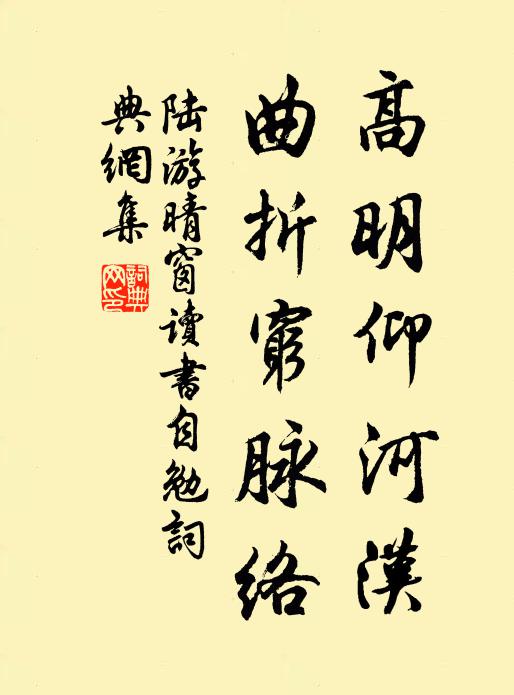 高明仰河漢
曲折窮脉絡
陆游晴窗讀書自勉詞
典網集
詞典
网印